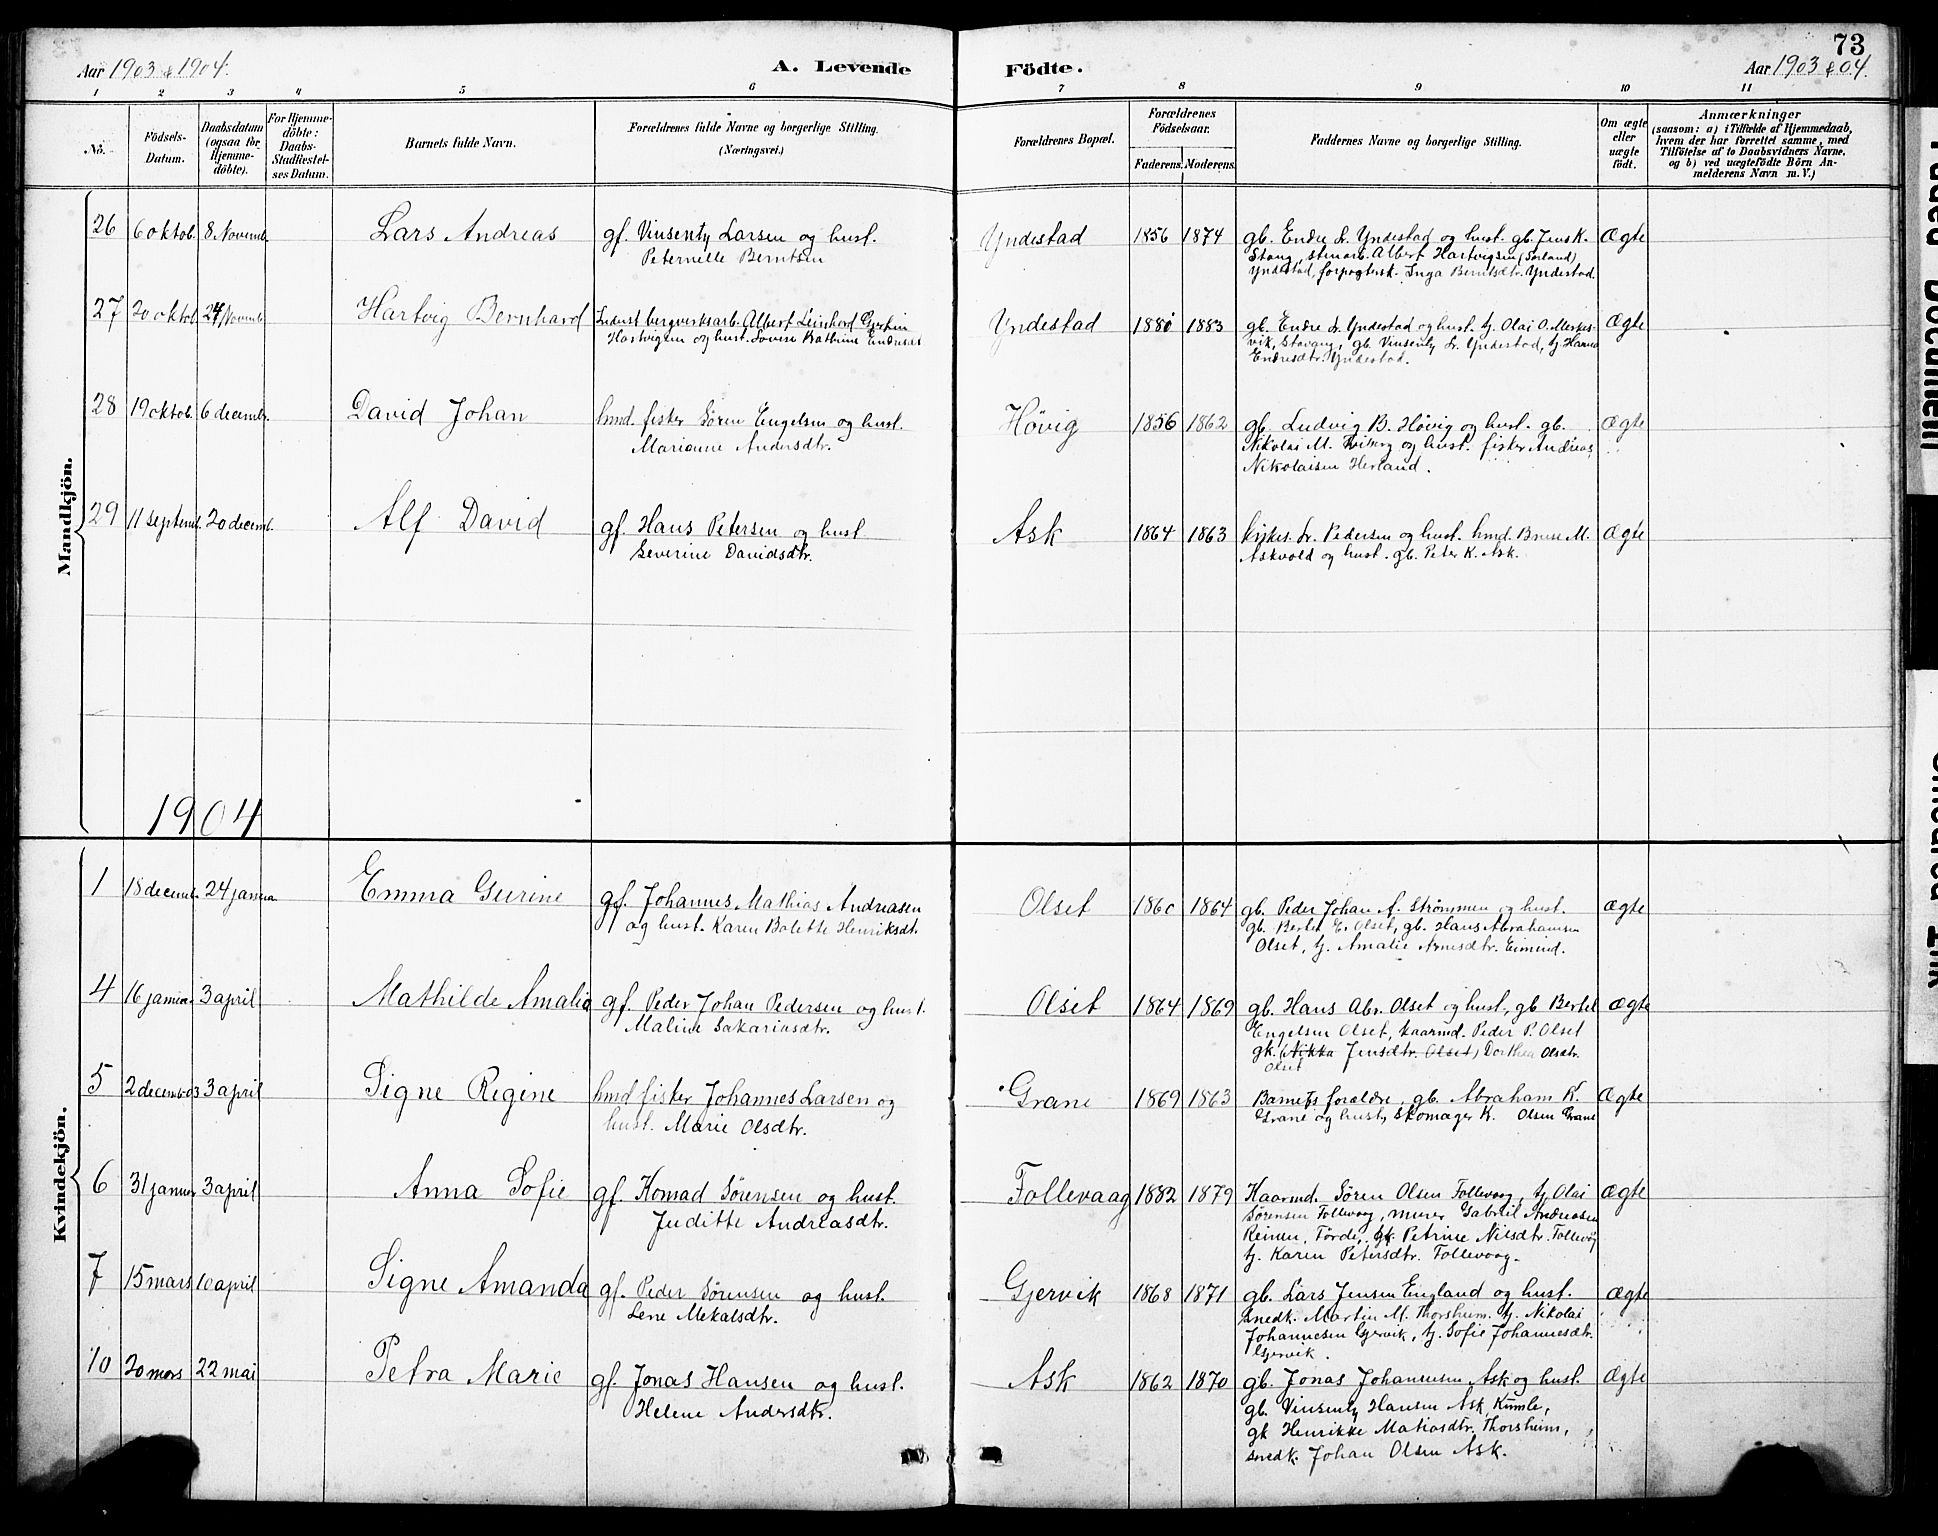 73
Aar 1903 & 1904. A. Levende Födte. Aar 1903 & 04.
1 2 3 4 5 6 7 8 9 10 11
No. Födsels-Datum. Daabsdatum (ogsaa for Hjemme-döbte). For Hjemme-döbte: Daabs-Stadfæstel-ses Datum. Barnets fulde Navn. Forældrenes fulde Navne og borgerlige Stilling. (Næringsvei.) Forældrenes Bopæl. Forældrenes Födselsaar. Faderens. Moderens. Faddernes Navne og borgerlige Stilling. Om ægte eller uægte födt. Anmærkninger (saasom: a) i Tilfælde af Hjemmedaab, hvem der har forrettet samme, med Tilföielse af to Daabsvidners Navne, og b) ved uægtefödte Börn An-melderens Navn m. V.)
Mandkjön.
26 6 oktob. 8 Novemb. Lars Andreas gf. Vinsenty Larsen og hust. Yndestad 1856 1874 gb. Endre Lr. Yndestad og hust. gb. Jens K. Ægte
Peternelle Berntsen Stang, stenarb. Albert Hartvigsen (Sørland)
Yndestad, forpagtersk. Inga Berntsdtr. Yndestad.
27 20 oktob. 24 Novemb. Hartvig Bernhard Indust bergverksarb. Albert Leinhard Yndestad 1880 1883 gb. Endre Lr. Yndestad og hust. tj. Olai O. Ægte
Hartvigsen og hust. Lovise Kathrine Endresdt. Stavang, gb. Vinsenty Lr. Yndestad, tj. Hanna
Endresdtr. Yndestad.
28 19 oktob. 6 decembr. David Johan hmd. fisker Søren Engelsen og hust. Høvig 1856 1862 gb. Ludvig B. Høvig og hust. gb. Ægte
Marianne Andersdtr. Nikolai M. og hust. fisker Andreas
Nikolaisen Herland.
29 11 septemb. 20 decemb. Alf David gf. Hans Petersen og hust Ask 1864 1863 kirkes. Lr. Pedersen og hust. hmd. M. Ægte
Severine Davidsdtr. Askvold og hust. gb. Peter K. Ask.
1904
Kvindekjön.
1 18 decemb. 24 janua Emma Gurine gf. Johannes Mathias Andreasen Olset 1860 1864 gb. Peder Johan A. Strømmen og hust. ægte
og hust. Karen Bolette Henriksdt. gb. Bertel E. Olset, gb. Hans Abrahamsen
Olset, tj. Amalie Arnesdtr. Eimind.
4 16 janua. 3 april Mathilde Amalia gf. Peder Johan Pedersen og hust. Olset 1864 1869 gb. Hans Abr. Olset og hust, gb Bertel Ægte
Maline Sakariasdtr. Engelsen Olset, kaarmd. Peder P. Olset
gk. (Nikka Jensdtr. Olset) Dorthea Olsdtr.
Olset
5 2 decemb 03 3 april Signe Regine hmd fisker Johannes Larsen og Grane 1869 1863 Barnets forældre, gb. Abraham K. Ægte
hust. Marie Olsdtr. Grane og hust, skomager K. Olsen Grane
6 31 januar 3 april Anna Sofie gf. Konrad Sørensen og hust. Follevaag 1882 1879 Kaarmd. Søren Olsen Follevaag, tj Olai Ægte
Juditte Andreasdtr. Sørensen Follevaag, murer Gabriel Andreasen
Reinen, Førde, gk. Petrine Nilsdtr. Follevåg
tj. Karen Petersdtr. Follevaag.
7 15 mars 10 april Signe Amanda gf. Peder Sørensen og hust. Gjervik 1868 1871 gb. Lars Jensen England og hust. Ægte
Lene Mekalsdtr. snedk. Martin M. Thorsheim. tj. Nikolai
Johannesen Gjervik, tj. Sofie Johannesdtr.
Gjervik.
10 20 mars 22 mai Petra Marie gf. Jonas Hansen og hust. Ask 1862 1870 gb. Jonas Johannesen Ask og hust. Ægte
Helene Andersdtr. gb. Vinsenty Hansen Ask, Kumle,
gk Henrikke Matiasdtr. Thorsheim,
snedk. Johan Olsen Ask.